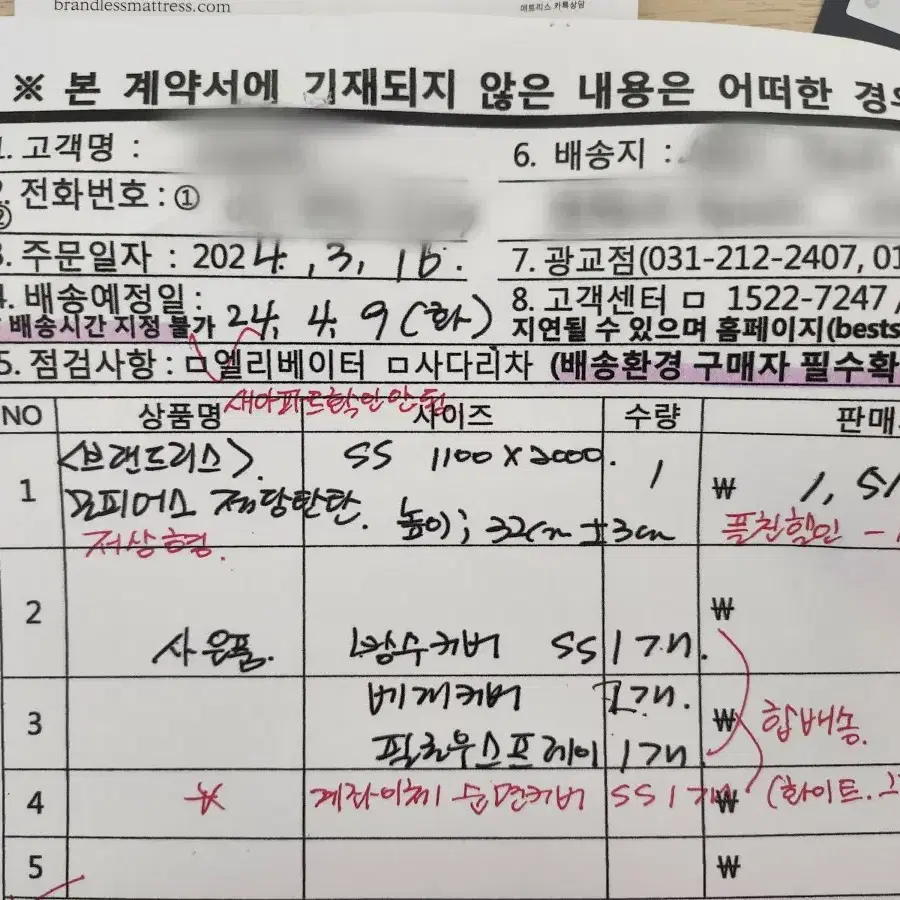 brandlessmattress.com
매트리스 카톡상담
※ 본 계약서에 기재되지 않은 내용은 어떠한 경우
1. 고객명 :
6. 배송지 :
2. 전화번호 : ①
②
3. 주문일자 : 2024. , 3, 16.
7. 광교점(031-212-2407, 01
4. 배송예정일 :
24, 4, 9 (화)
8. 고객센터 ㅁ 1522-7247 /
배송시간 지정 불가
지연될 수 있으며 홈페이지(bests
5. 점검사항 : ㅁ엘리베이터 ㅁ사다리차 (배송환경 구매자 필수확
새아파트확인안됨
NO 상품명 사이즈 수량 판매
1 <브랜드리스> SS 1100 X 2000. 1 ₩ 1, 51
모피머스 적당탄탄. 높이; 32cm ±3cm
저상형.
플친할인 -
2 ₩
사은품. 방수커버 SS 1개.
3 베개커버 1개. ₩ 합배송.
필로우스프레이 1개
4 계좌이체 순면커버 SS 1개 ₩ (화이트.
5 ₩